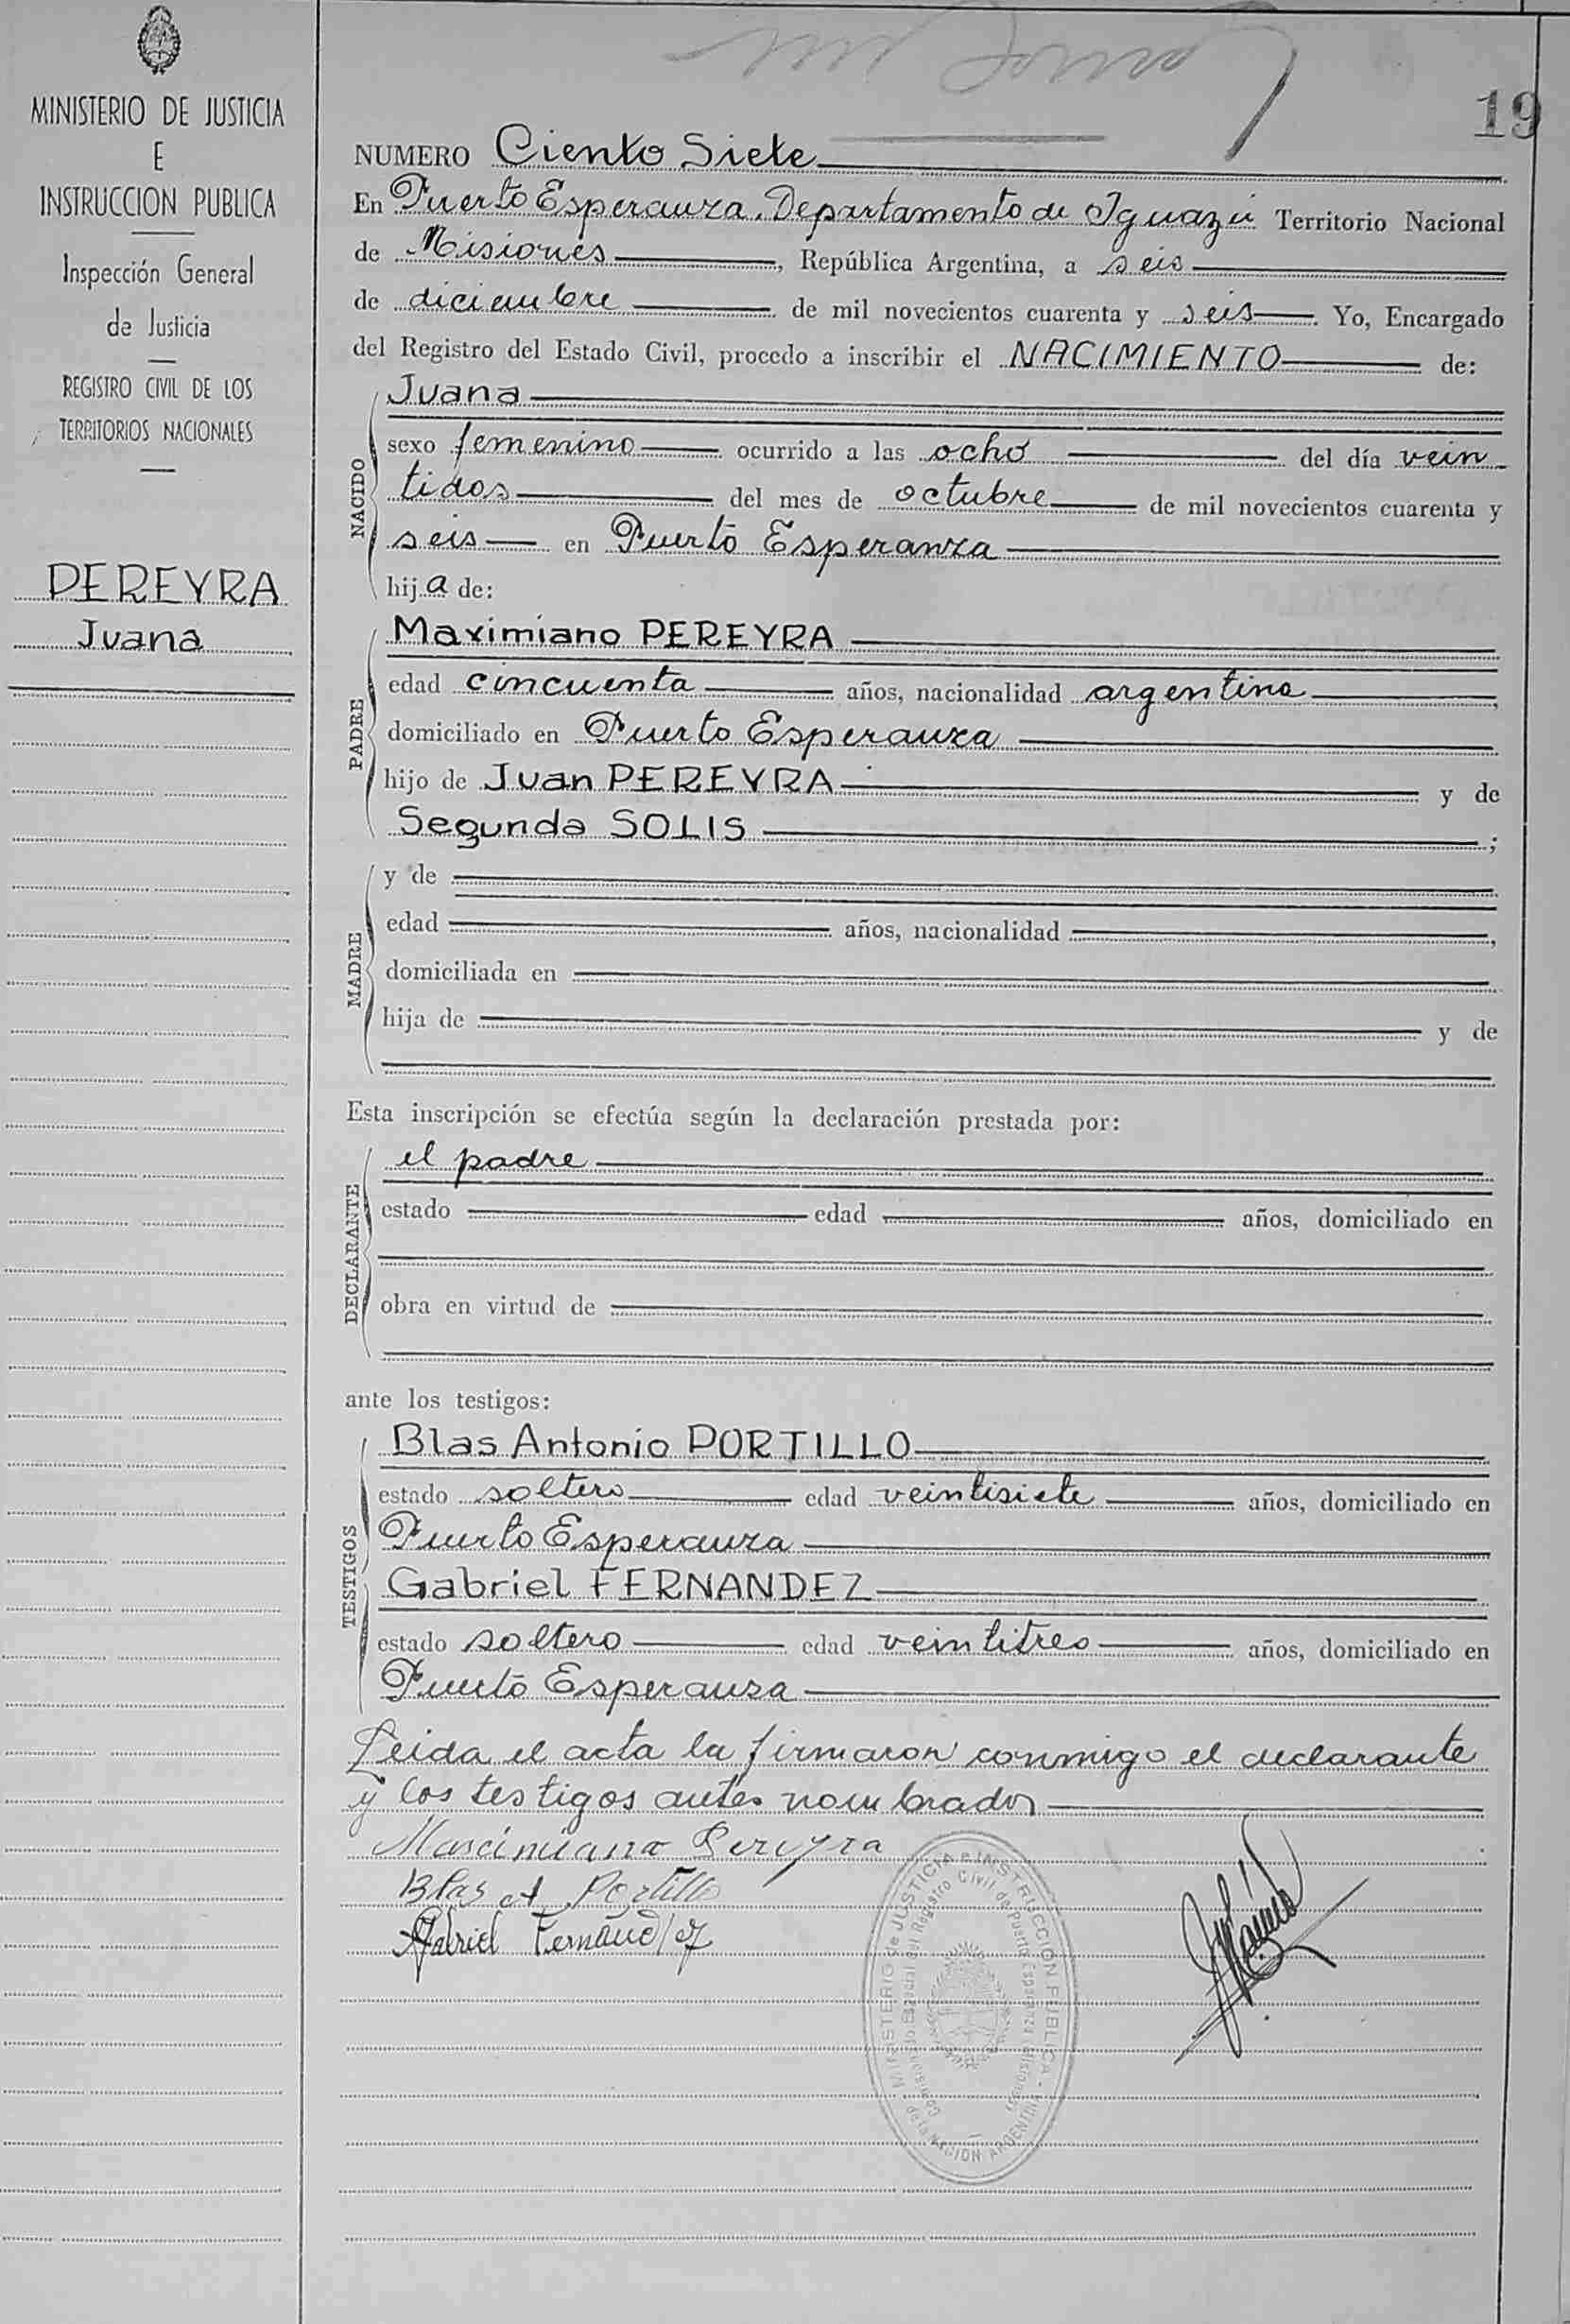 MINISTERIO DE JUSTICIA
E
INSTRUCCION PUBLICA
Inspección General
de Justicia
REGISTRO CIVIL DE LOS
TERRITORIOS NACIONALES
PEREYRA
Juana
19
NUMERO Ciento Siete
En Puerto Esperanza. Departamento de Iguazú Territorio Nacional
de Misiones, República Argentina, a seis
de diciembre de mil novecientos cuarenta y seis. Yo, Encargado
del Registro del Estado Civil, procedo a inscribir el NACIMIENTO de:
NACIDO
Juana
sexo femenino ocurrido a las ocho del día vein
tidos del mes de octubre de mil novecientos cuarenta y
seis en Puerto Esperanza
hija de:
PADRE
Maximiano PEREYRA
edad cincuenta años, nacionalidad argentina,
domiciliado en Puerto Esperanza
hijo de Juan PEREYRA y de
Segunda SOLIS;
MADRE
y de
edad años, nacionalidad,
domiciliada en
hija de y de
Esta inscripción se efectúa según la declaración prestada por:
DECLARANTE
el padre
estado edad años, domiciliado en
obra en virtud de
ante los testigos:
TESTIGOS
Blas Antonio PORTILLO
estado soltero edad veintisiete años, domiciliado en
Puerto Esperanza
Gabriel FERNANDEZ
estado soltero edad veintitres años, domiciliado en
Puerto Esperanza
Leida el acta la firmaron conmigo el declarante
y los testigos antes nombrados
Marcimiano Pereyra
Blas A Portillo
Gabriel Fernandez
MINISTERIO de JUSTICIA e INSTRUCCIÓN PUBLICA
de la NACIÓN ARGENTINA
Comisionado Especial del Registro Civil de Puerto Esperanza (Misiones)